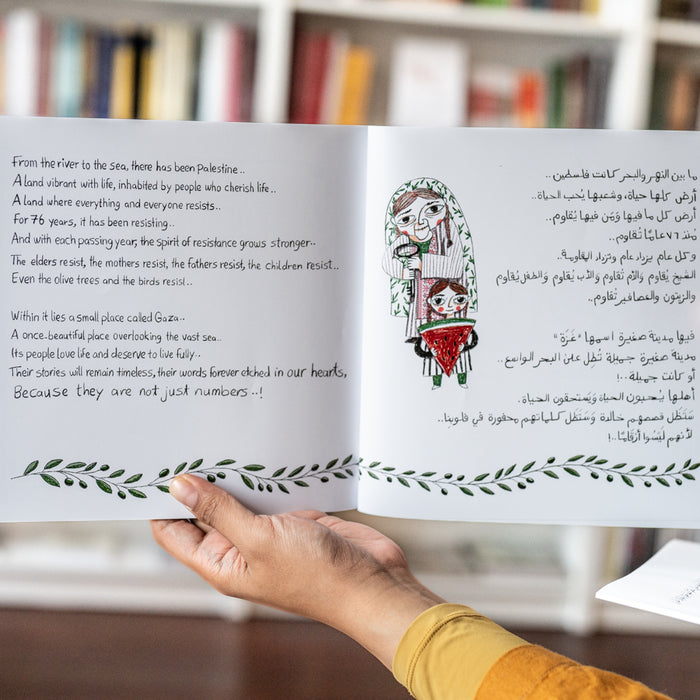 From the river to the sea, there has been Palestine..
A land vibrant with life, inhabited by people who cherish life..
A land where everything and everyone resists..
For 76 years, it has been resisting..
And with each passing year, the spirit of resistance grows stronger..
The elders resist, the mothers resist, the fathers resist, the children resist..
Even the olive trees and the birds resist..
Within it lies a small place called Gaza..
A once-beautiful place overlooking the vast sea..
Its people love life and deserve to live fully..
Their stories will remain timeless, their words forever etched in our hearts,
Because they are not just numbers ..!
ما بين النهر والبحر كانت فلسطين..
أرض كلها حياة، وشعبها يُحب الحياة..
أرض كل ما فيها وَمَن فيها يُقاوم..
مُنذ ٧٦ عامًا تُقاوم..
وكل عام يزداد عام وتزداد المقاومة..
الشيخ يُقاوم والأم تُقاوم والأب يُقاوم والطفل يُقاوم
والزيتون والعصافير تُقاوم..
فيها مدينة صغيرة اسمها "غَزَة"
مدينة صغيرة جميلة تُطل على البحر الواسع..
أو كانت جميلة..!
أهلها يُحبون الحياة وَيَستحقون الحياة.
سَتَظل قصصهم خالدة وَسَتَظل كلماتهم محفورة في قلوبنا..
لأنهم لَيْسُوا أَرْقَامًا..!